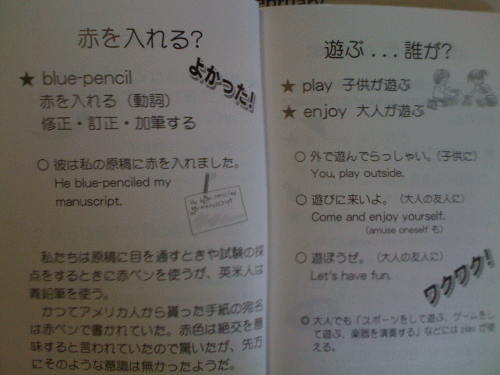 赤を入れる?
★ blue-pencil
赤を入れる（動詞）
修正・訂正・加筆する
よかった!
○ 彼は私の原稿に赤を入れました。
He blue-penciled my
manuscript.
私たちは原稿に目を通すときや試験の採
点をするときに赤ペンを使うが、英米人は
青鉛筆を使う。
かつてアメリカ人から貰った手紙の宛名
は赤ペンで書かれていた。赤色は絶交を意
味すると言われていたので驚いたが、先方
にそのような意識は無かったようだ。
遊ぶ...誰が?
★ play 子供が遊ぶ
★ enjoy 大人が遊ぶ
○ 外で遊んでらっしゃい。（子供に）
You, play outside.
○ 遊びに来いよ。（大人の友人に）
Come and enjoy yourself.
(amuse oneself も)
○ 遊ぼうぜ。（大人の友人に）
Let's have fun.
ワクワク!
◎ 大人でも「スポーツをして遊ぶ、ゲームをし
て遊ぶ、楽器を演奏する」などには play が使
える。